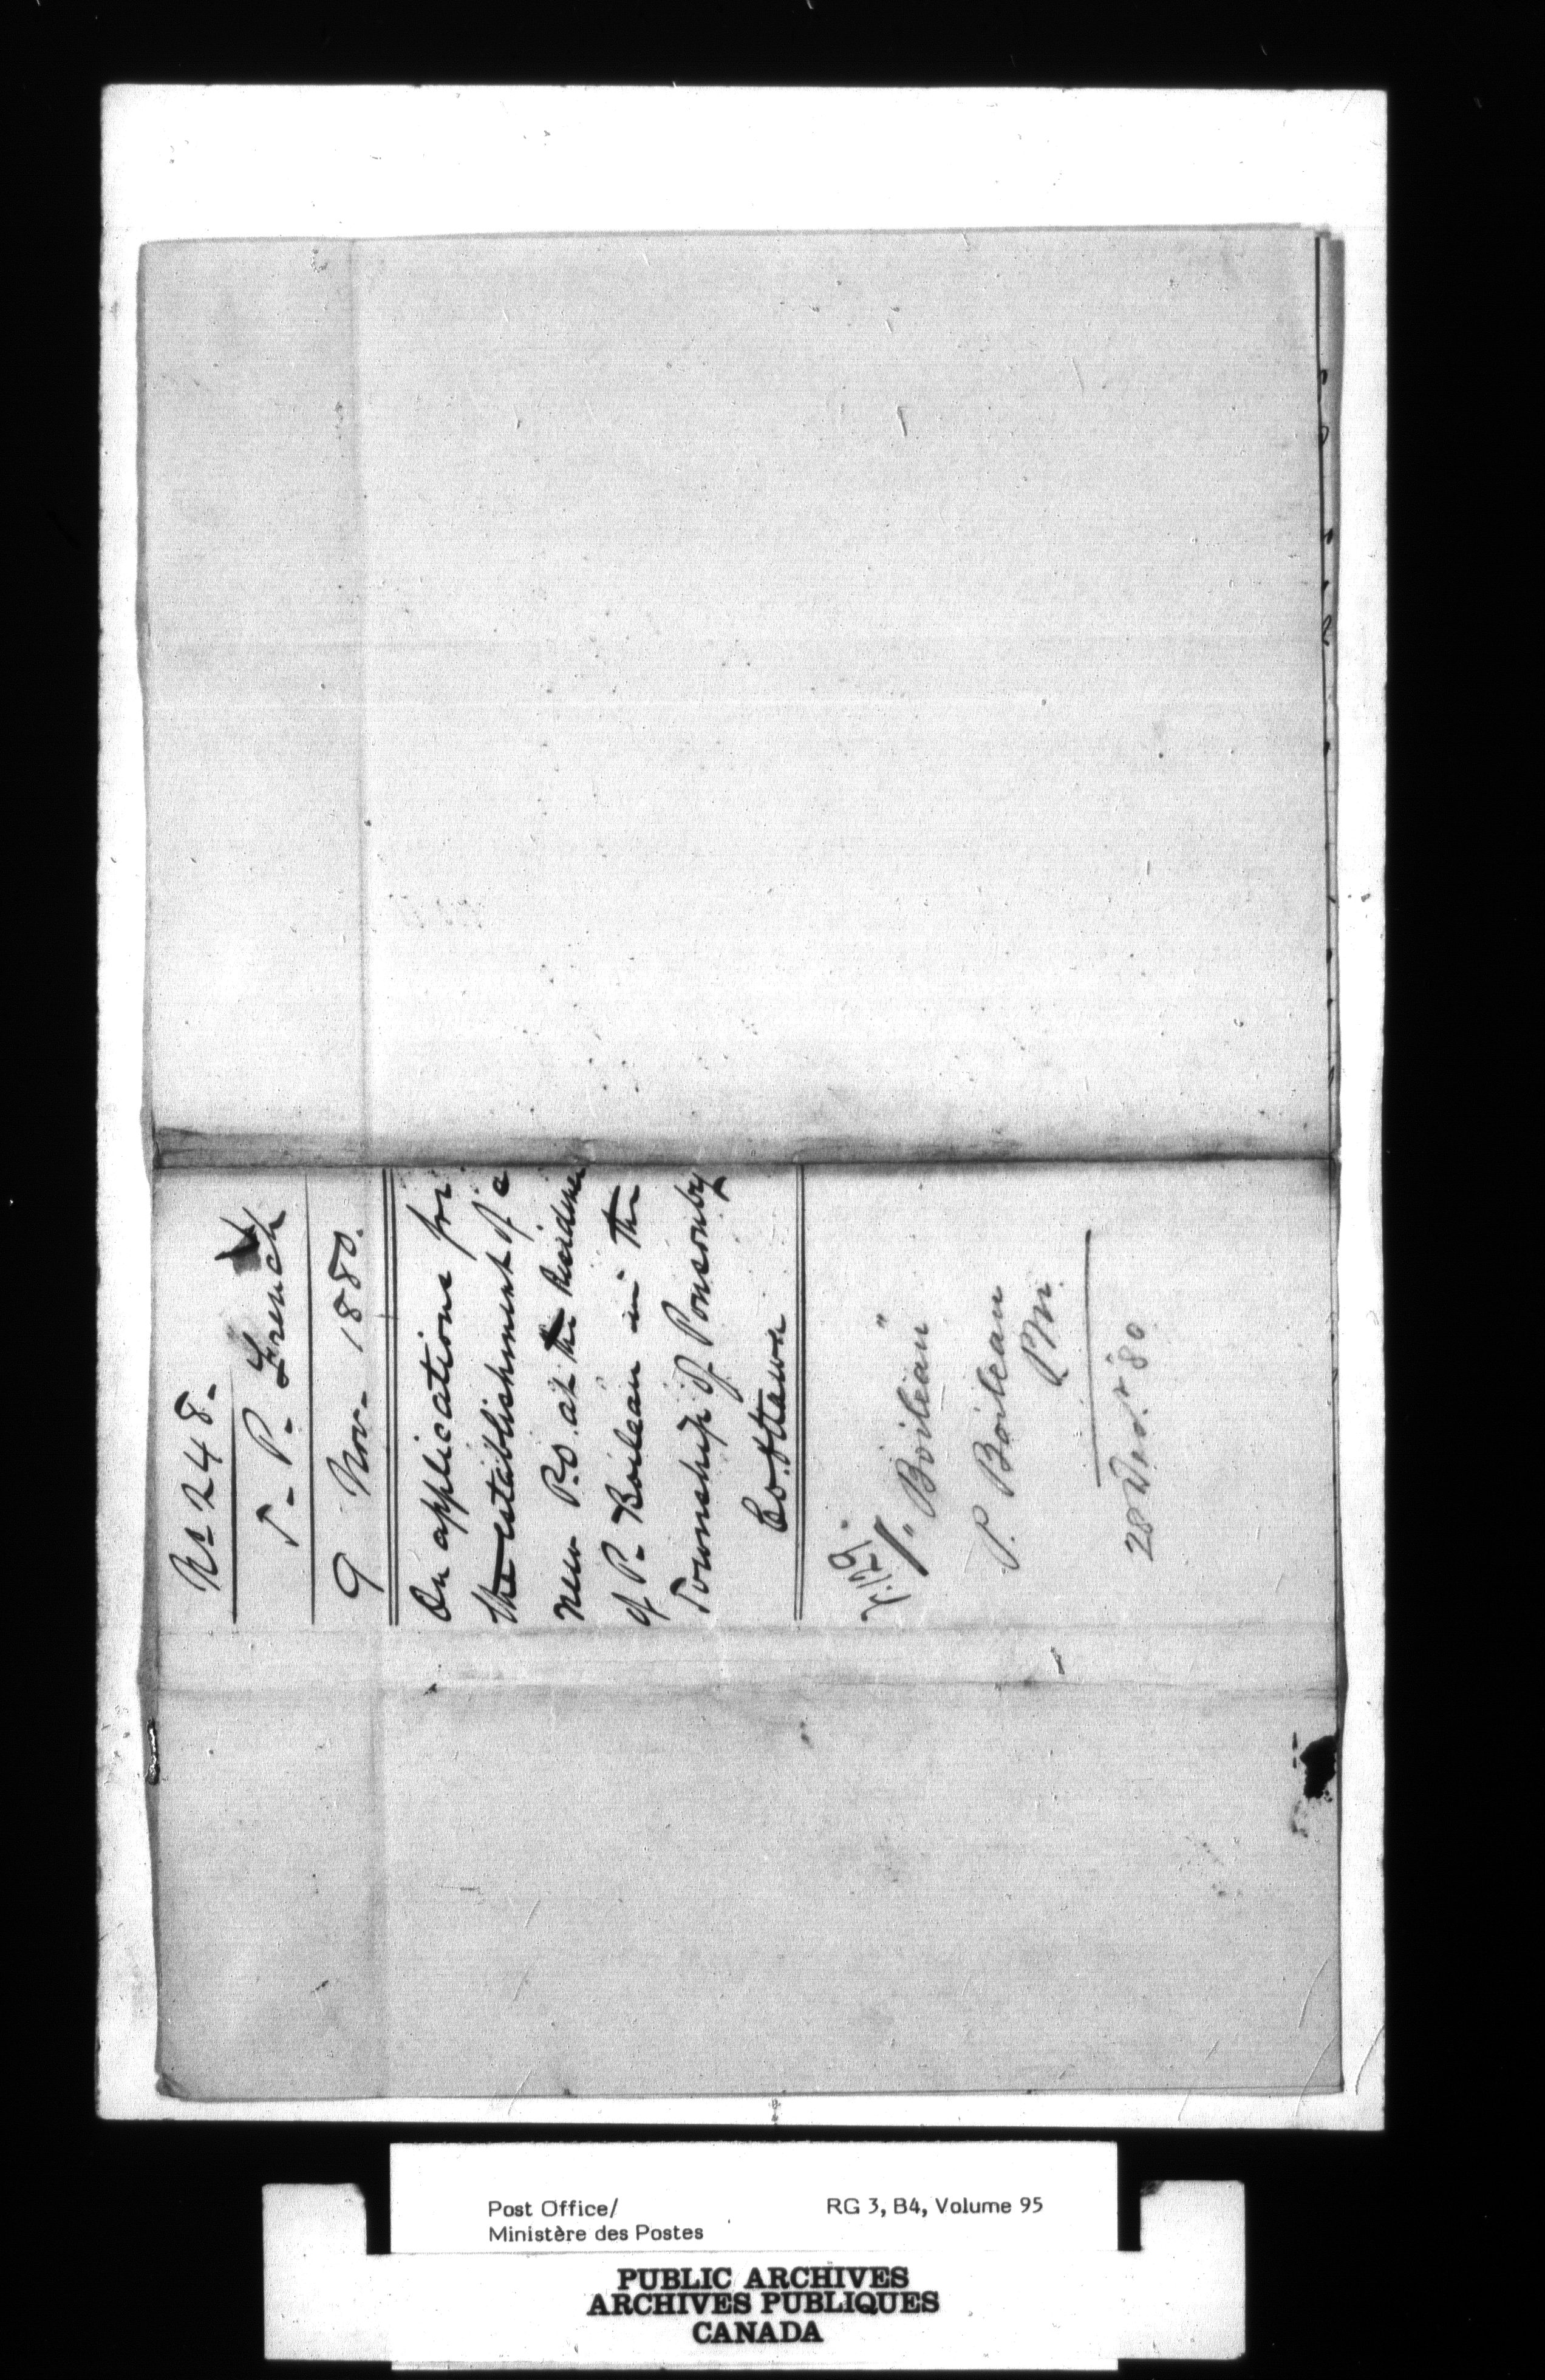 No 248.
T. P. French
9 Nov. 1880.
On applications for
the establishment of a
new P.O. at the Residence
of P. Boileau in the
Township of Ponsonby
Co. Ottawa
"Boileau"
P. Boileau
PM.
28 Decr. '80
Post Office/
Ministère des Postes
RG 3, B4, Volume 95
PUBLIC ARCHIVES
ARCHIVES PUBLIQUES
CANADA